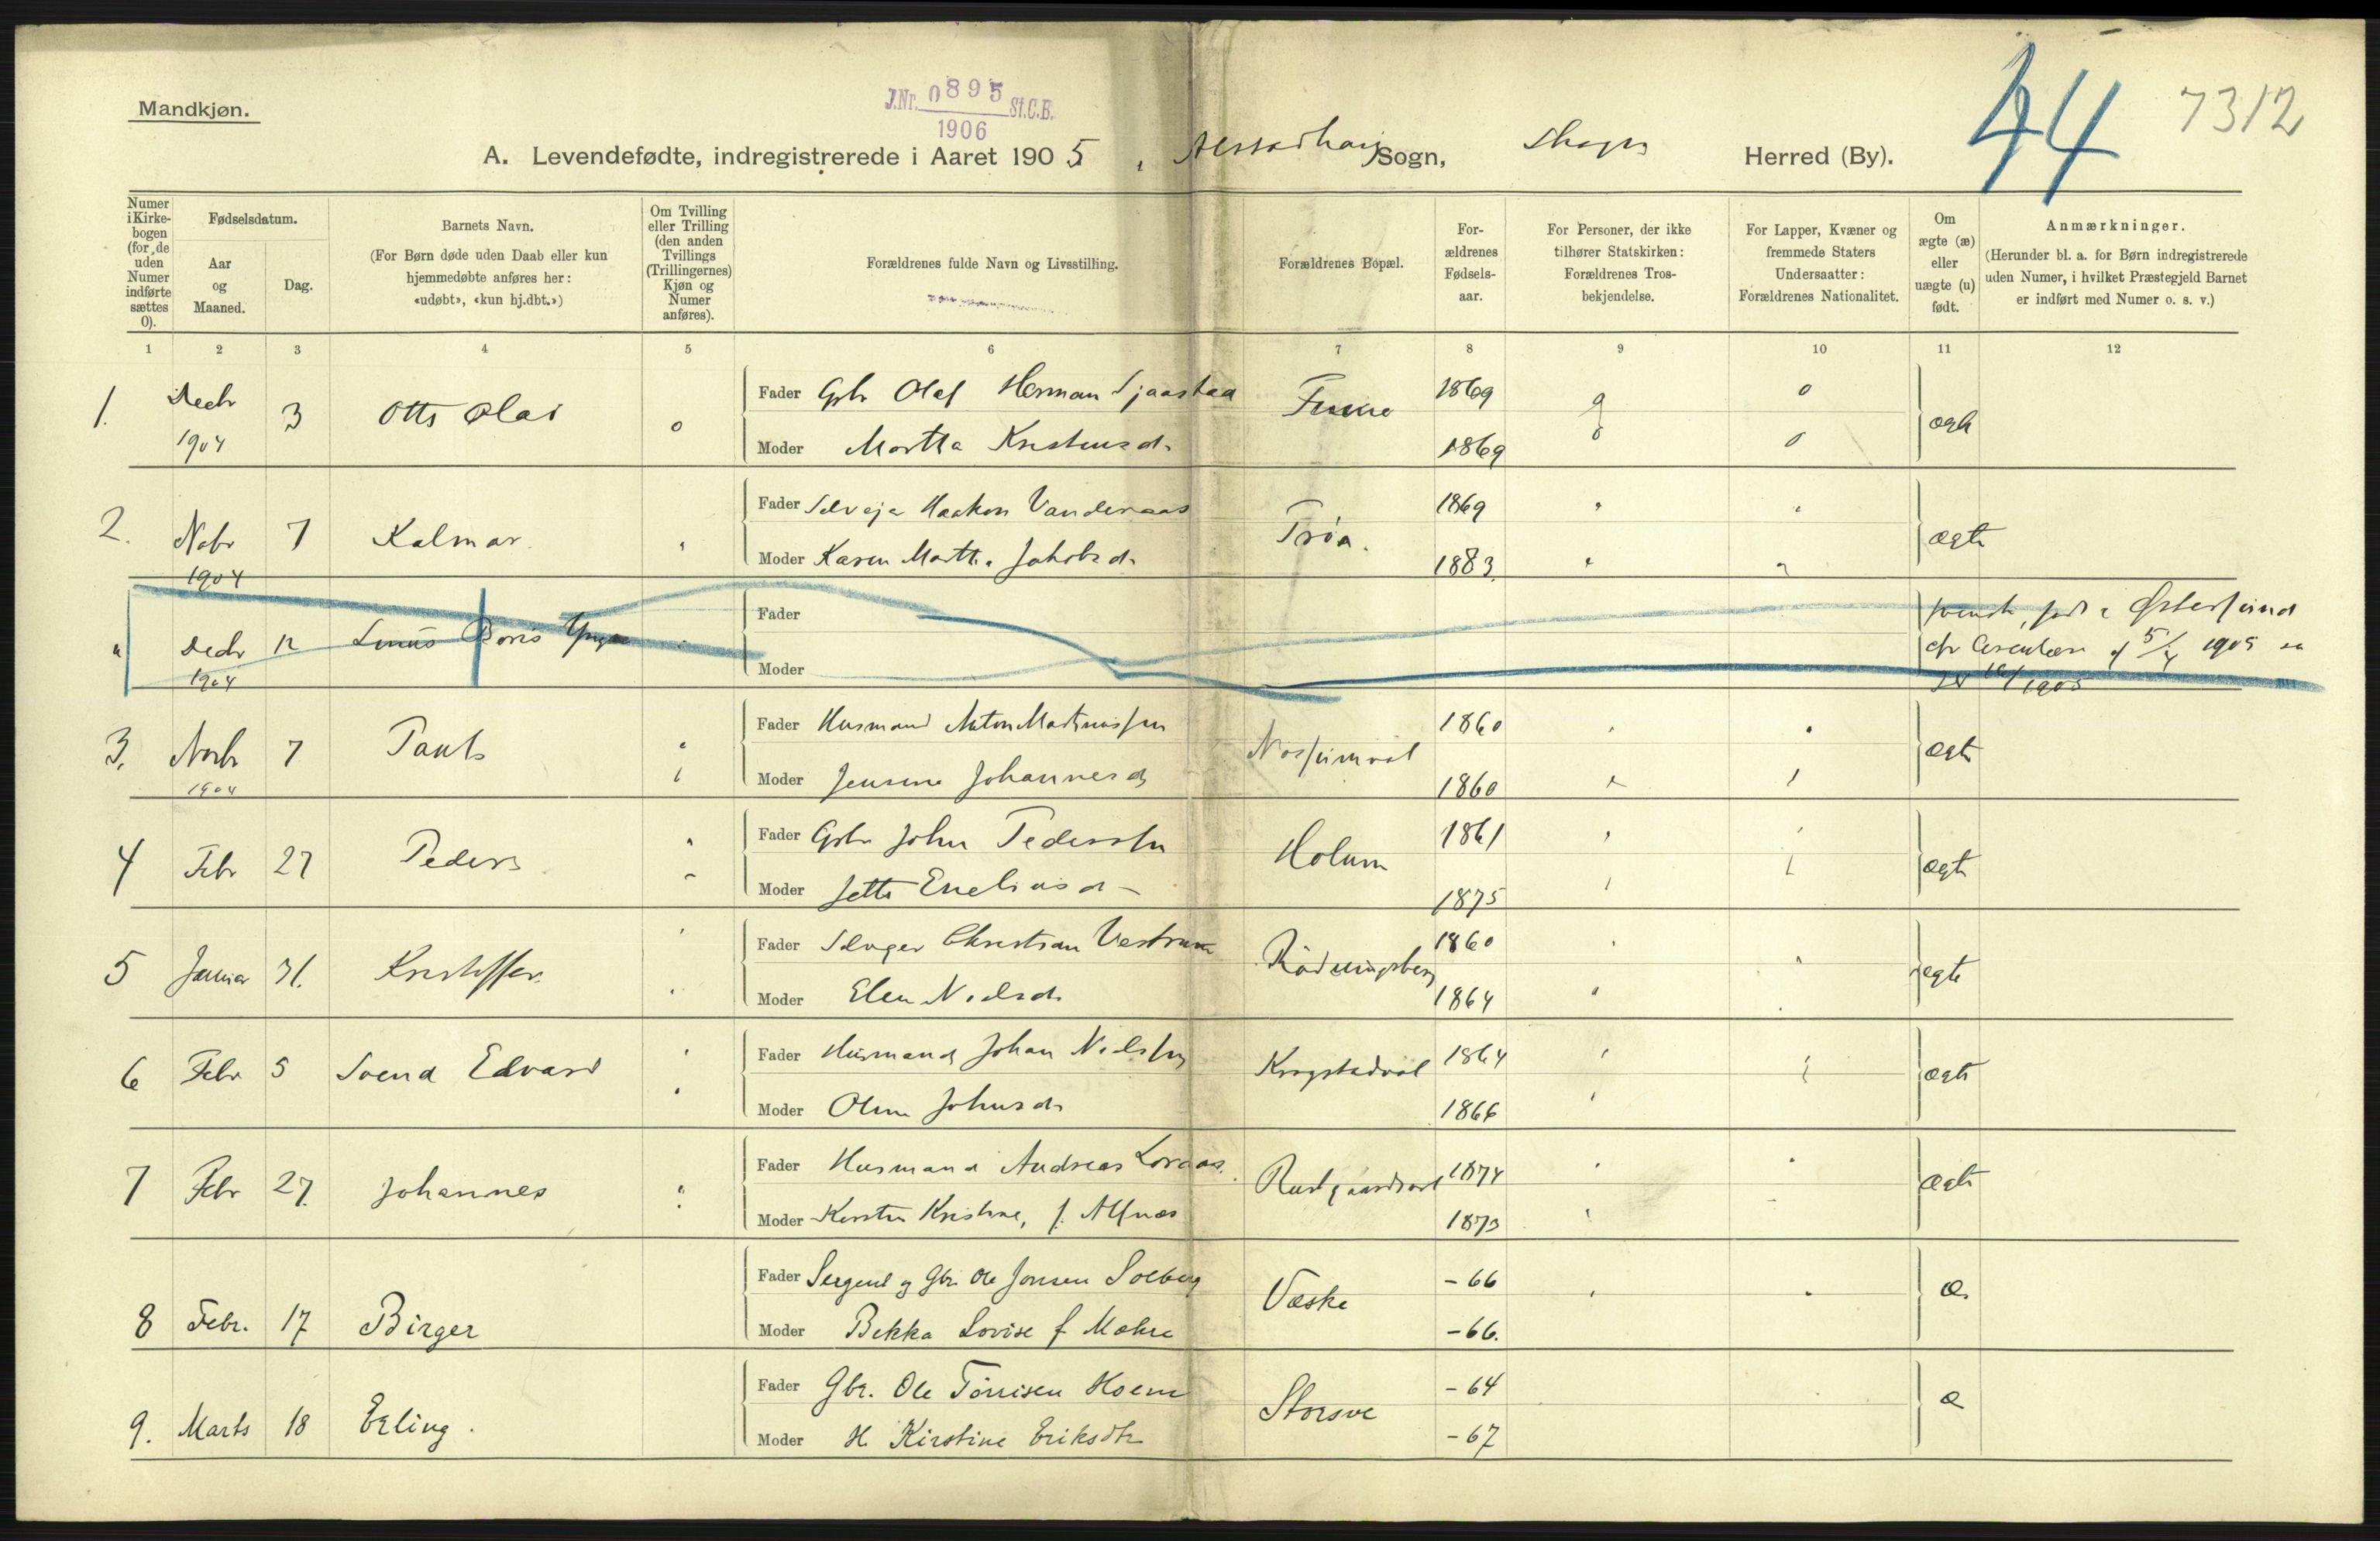 Mandkjøn.
J.Nr. 0895 St.C.B.
1906
44 7312
A. Levendefødte, indregistrerede i Aaret 1905, Alstadhaug Sogn, Skogn Herred (By).
Numer i Kirkebogen (for de uden Numer indførte sættes 0).
Fødselsdatum.
Aar og Maaned.
Dag.
Barnets Navn.
(For Børn døde uden Daab eller kun hjemmedøbte anføres her: «udøbt», «kun hj.dbt.»)
Om Tvilling eller Trilling (den anden Tvillings (Trillingernes) Kjøn og Numer anføres).
Forældrenes fulde Navn og Livsstilling.
Forældrenes Bopæl.
Forældrenes Fødselsaar.
For Personer, der ikke tilhører Statskirken: Forældrenes Trosbekjendelse.
For Lapper, Kvæner og fremmede Staters Undersaatter: Forældrenes Nationalitet.
Om ægte (æ) eller uægte (u) født.
Anmærkninger.
(Herunder bl. a. for Børn indregistrerede uden Numer, i hvilket Præstegjeld Barnet er indført med Numer o. s. v.)
1 2 3 4 5 6 7 8 9 10 11 12
1. Decbr 1904 3 Otto Olai 0 Fader Gbr Olaf Herman 1869 0
Moder Martha 1869 0 0 ægte
2. Nobr 1904 7 Kalmar. " Fader Selvejer Haakon Vanderaas Trøa. 1869 " "
Moder Karen Martha Jakobsd. 1883. " " ægte
" Decbr 1904 12 Linus Boris Yngve Fader
Moder
født i Østersund
af 5/4 1905
3. Novbr 1904 7 Paul Fader Husmand Anton Martinussen 1860
Moder Jensine Johannesd. 1860 ægte
4 Febr 27 Peder Fader Gbr John Pederssen Holum 1861
Moder Jette Eneliusd 1875 ægte
5 Januar 31. Kristoffer. Fader Selveger Christian Vestrum 1860
Moder Elen Nielsd. 1864 ægte
6 Febr 5 Svend Edvard Fader Husmand Johan Nielssen 1864
Moder Oline Johnsd. 1866 ægte
7 Febr 27. Johannes Fader Husmand Andreas Loraas. 1874
Moder Kirstin Kristine, f. Alfnæs 1873 ægte
8 Febr. 17 Birger Fader Sergent og Gbr. Ole Jonsen Solberg Væske - 66
Moder Bekka Lovise f Mokre - 66. æ.
9. Marts 18 Erling. Fader Gbr. Ole Tørrisen Hoem Storsve - 64
Moder H Kirstine Eriksdtr - 67 æ